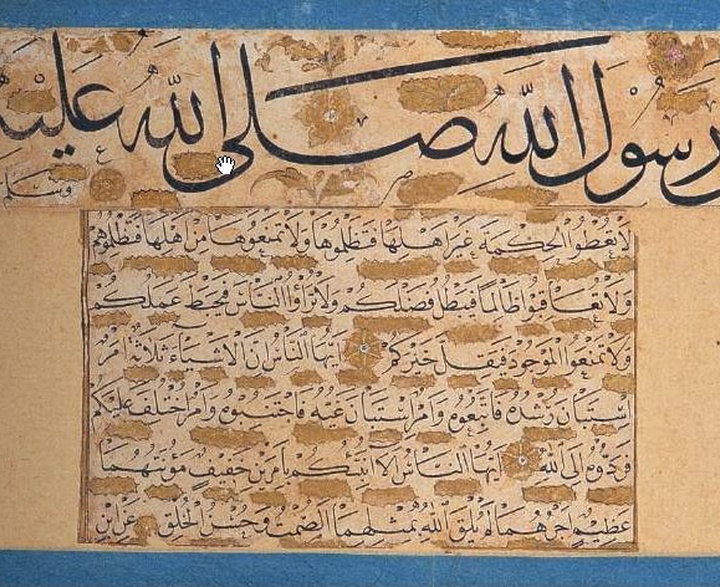 رسول الله صلى الله عليه
وسلم
لا تعطوا الحكمة غير اهلها فتظلموها ولا تمنعوها من اهلها فتظلموهم
ولا تعاقبوا ظالما فيبطل فضلكم ولا تراؤا الناس فيحبط عملكم
ولا تمنعوا الموجود فيقل خيركم ايها الناس ان الاشياء ثلاثة امر
استبان رشده فاتبعوه وامر استبان غيه فاجتنبوه وامر اختلف عليكم
فردوه الى الله ايها الناس الا انبئكم بامرين خفيف مؤنتهما
عظيم اجرهما لم يلق الله بمثلهما الصمت وحسن الخلق عن ابن